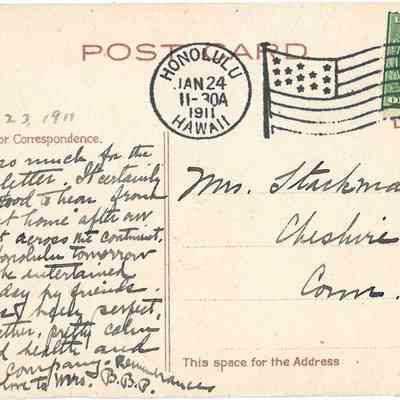 POST CARD
HONOLULU
JAN 24
11-30A
1911
HAWAII
23, 1911
or Correspondence.
so much for the
letter, It certainly
good to hear from
at home after our
across the continent.
Honolulu tomorrow
be entertained
day by friends.
perfect,
pretty calm
health and
company. Remembrances
love to Mrs. B.B.P.
Mrs. Stackma
Cheshire
Conn.
This space for the Address